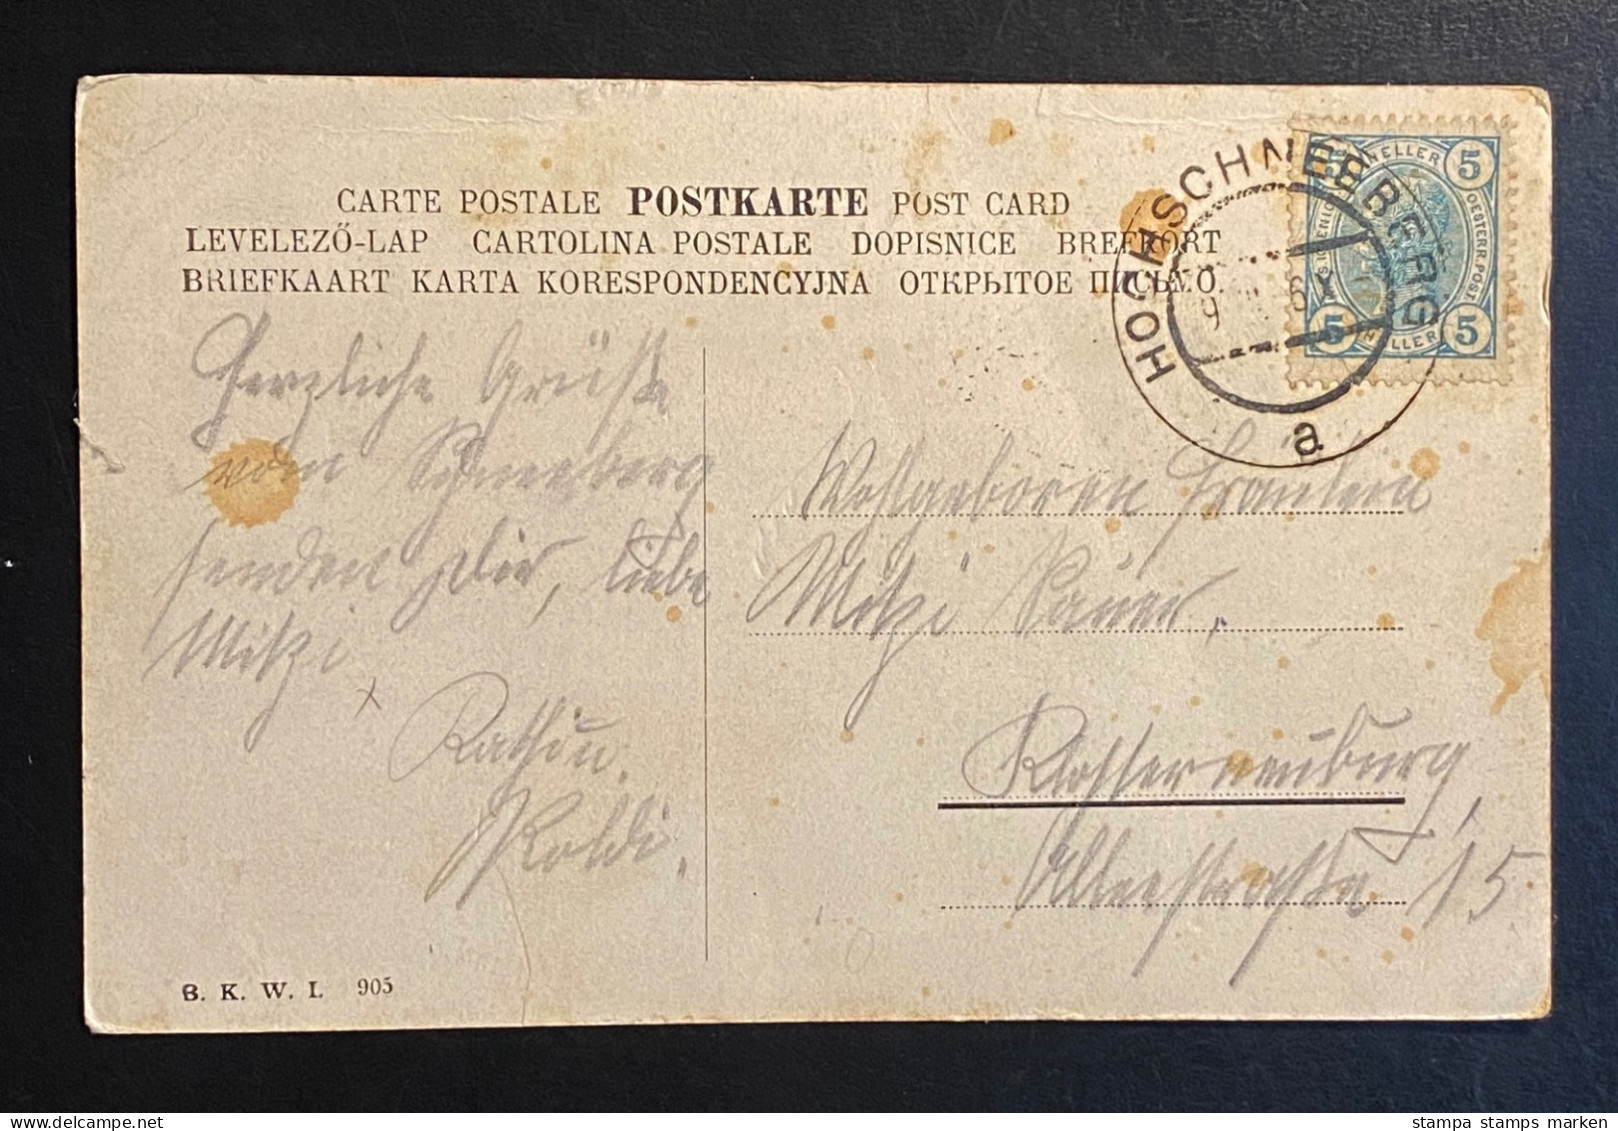 CARTE POSTALE POSTKARTE POST CARD
LEVELEZŐ-LAP CARTOLINA POSTALE DOPISNICE BREFKORT
BRIEFKAART KARTA KORESPONDENCYJNA ОТКРЫТОЕ ПИСЬМО.
HOCHSCHNEEBERG
a
5 5
5 5
HELLER
HELLER
OESTERR. POST
Herzliche Grüße
vom Schneeberg
senden Dir, liebe
Mitzi
Poldi.
Wohlgeboren Fräulein
Mitzi
Klosterneuburg,
15
B. K. W. I. 905
stampa stamps marken